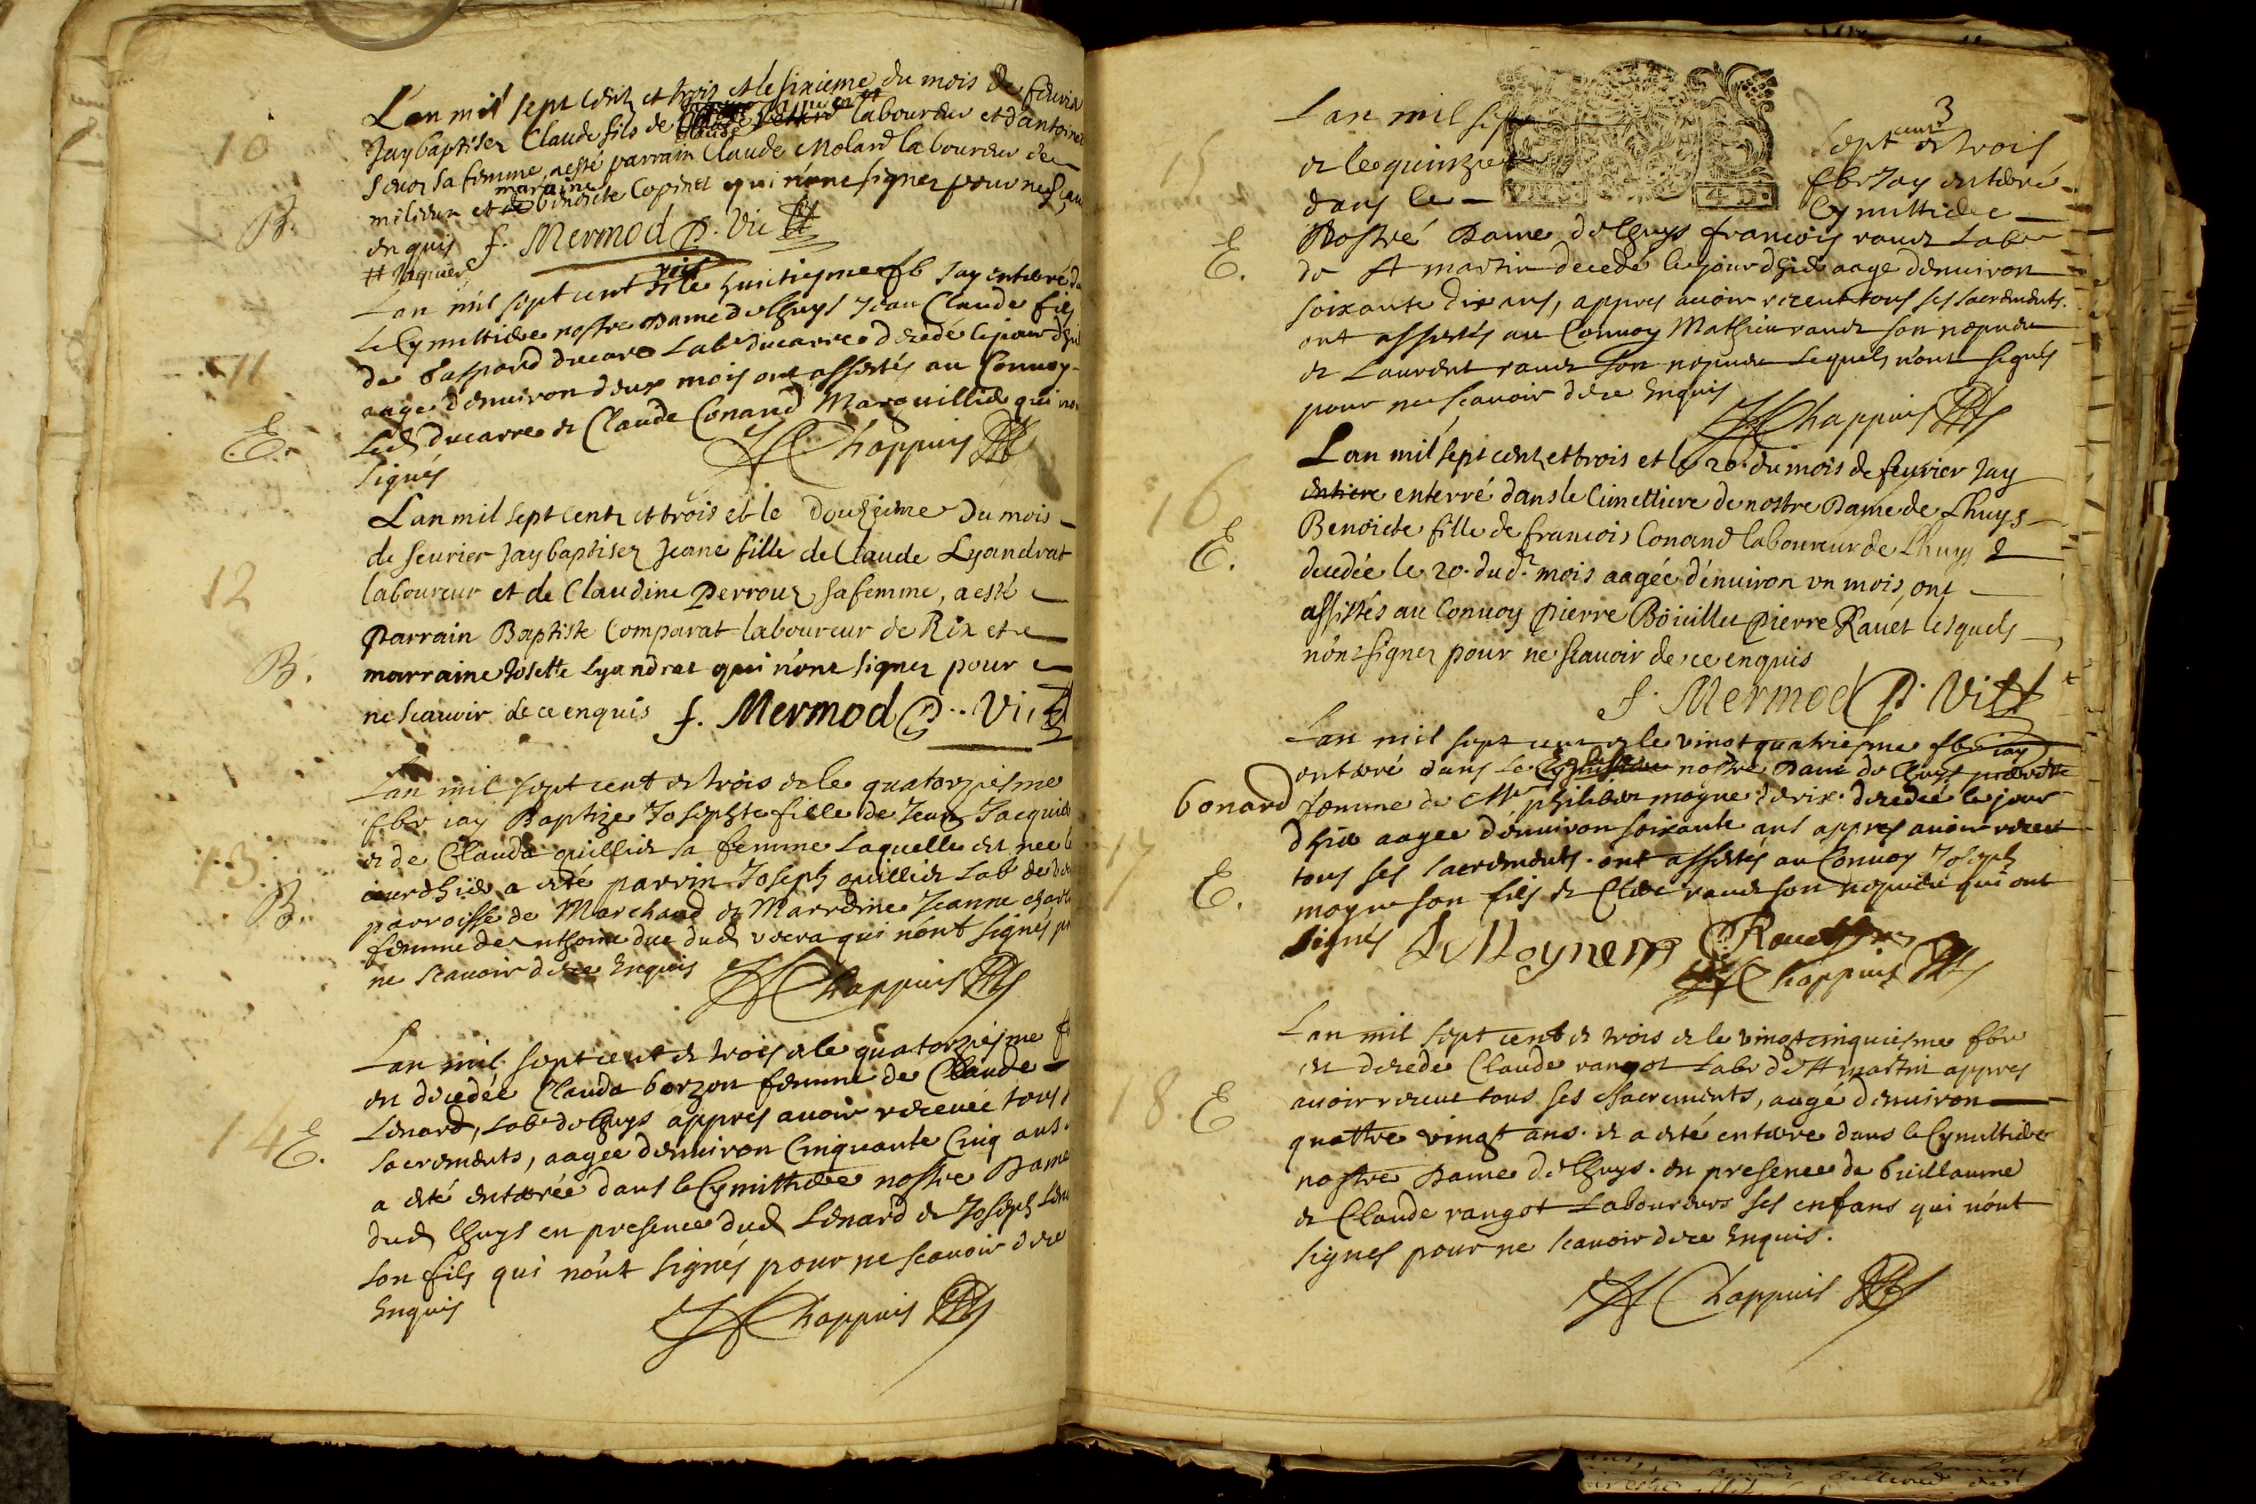 10
L'an mil sept centz et trois et le sixieme du mois de feuvrier
Jay baptisez Claude fils de laboureur et d'antoinet
sa femme, a esté parrain Claude Molard laboureur de
milieux et marraine benoicte Copinet qui n'ont signez pour ne scau
B.
enquis f. Mermod p. Vic
L'an mil sept cent trois et le huictiesme fb Jay enterré d
le Cymittiere nostre Dame de lhuys Jean Claude fils
11
de Gaspard ducarre Labr ducarre decedé le jour d'hie
aagé d'enuiron deux mois ont assistés au Conuoy
E.
Led ducarre et Claude Conand Marguillier qui n'on
signés
H Chappuis
L'an mil sept centz et trois et le douziéme du mois
de feurier Jay baptisez Jeane fille de Claude Lyandrat
12
laboureur et de Claudine Perrouz sa femme, a esté
Parrain Baptiste Comparat laboureur de Rix et
B.
marraine Josette Lyandrat qui n'ont signez pour
ne scauoir de ce enquis f. Mermod p. Vic
L'an mil sept cent et trois et le quatorziesme
fbr iay Baptize Josephte fille de Jean Jacquie
13
et de Clauda quillier sa femme Laquelle est nee
B.
aurdhier a esté parrin Joseph quillier Lab de
parroisse de Marchand et Marrdine Jeanne
femme de duc dud qui n'ont signés p
ne scauoir de ce Enquis
H Chappuis
L'an mil sept cent et trois et le quatorziesme f
est decedée Clauda borzon femme de Claude
Lenard, Labr de lhuys appres auoir receue tous
14 E.
sacrements, aagée d'enuiron Cinquante Cinq ans
a esté enterée dans le Cymittiere nostre Dame
dud lhuys en presence dud Lenard et Joseph Len
son fils qui n'ont signés pour ne scauoir de ce
Enquis
H Chappuis
3
L'an mil sept cent et trois
15
et le quinzie fbr Jay enterré
dans le Cymittiere
E.
Nostre Dame de lhuys francois rauet Labr
de St martin decedé le jour d'hier aage d'enuiron
soixante dix ans, appres auoir receu tous ses sacrements.
ont assistés au Conuoy Mathieu rauet son nepueu
et Laurent rauet son nepueu Lequels n'ont signés
pour ne scauoir de ce Enquis
H Chappuis
L'an mil sept centz et trois et le 20. du mois de feurier Jay
16
enterré dans le Cimettiere de nostre Dame de Lhuys
E.
Benoicte fille de francois Conand laboureur de Lhuys
decedée le 20. dud. mois aagée d'enuiron un mois, ont
assistés au Conuoy Pierre Boüillet Pierre Rauet lesquels
n'ont signez pour ne scauoir de ce enquis
f. Mermod p. Vic
L'an mil sept cent et le vingt quatriesme fbr iay
enterré dans Le nostre Dame de lhuys
bonard femme de Mr philibert moyne de rix decedée le jour
17
d'hier aagee d'enuiron soixante ans appres auoir receu
E.
tous ses sacrements. ont assistés au Conuoy Joseph
moyne son fils et Claude rauet son nepueu qui ont
signés J Moyne Rauet
H Chappuis
L'an mil sept cent et trois et le vingtcinquiesme fbr
est decede Claude rangot Labr de St martin appres
18. E
auoir receu tous ses sacrements, aagé d'enuiron
quattre vingt ans. et a esté enterre dans le Cymittiere
nostre Dame de lhuys. en presence de Guillaume
et Claude rangot Laboureurs ses enfans qui n'ont
signes pour ne scauoir de ce Enquis.
H Chappuis